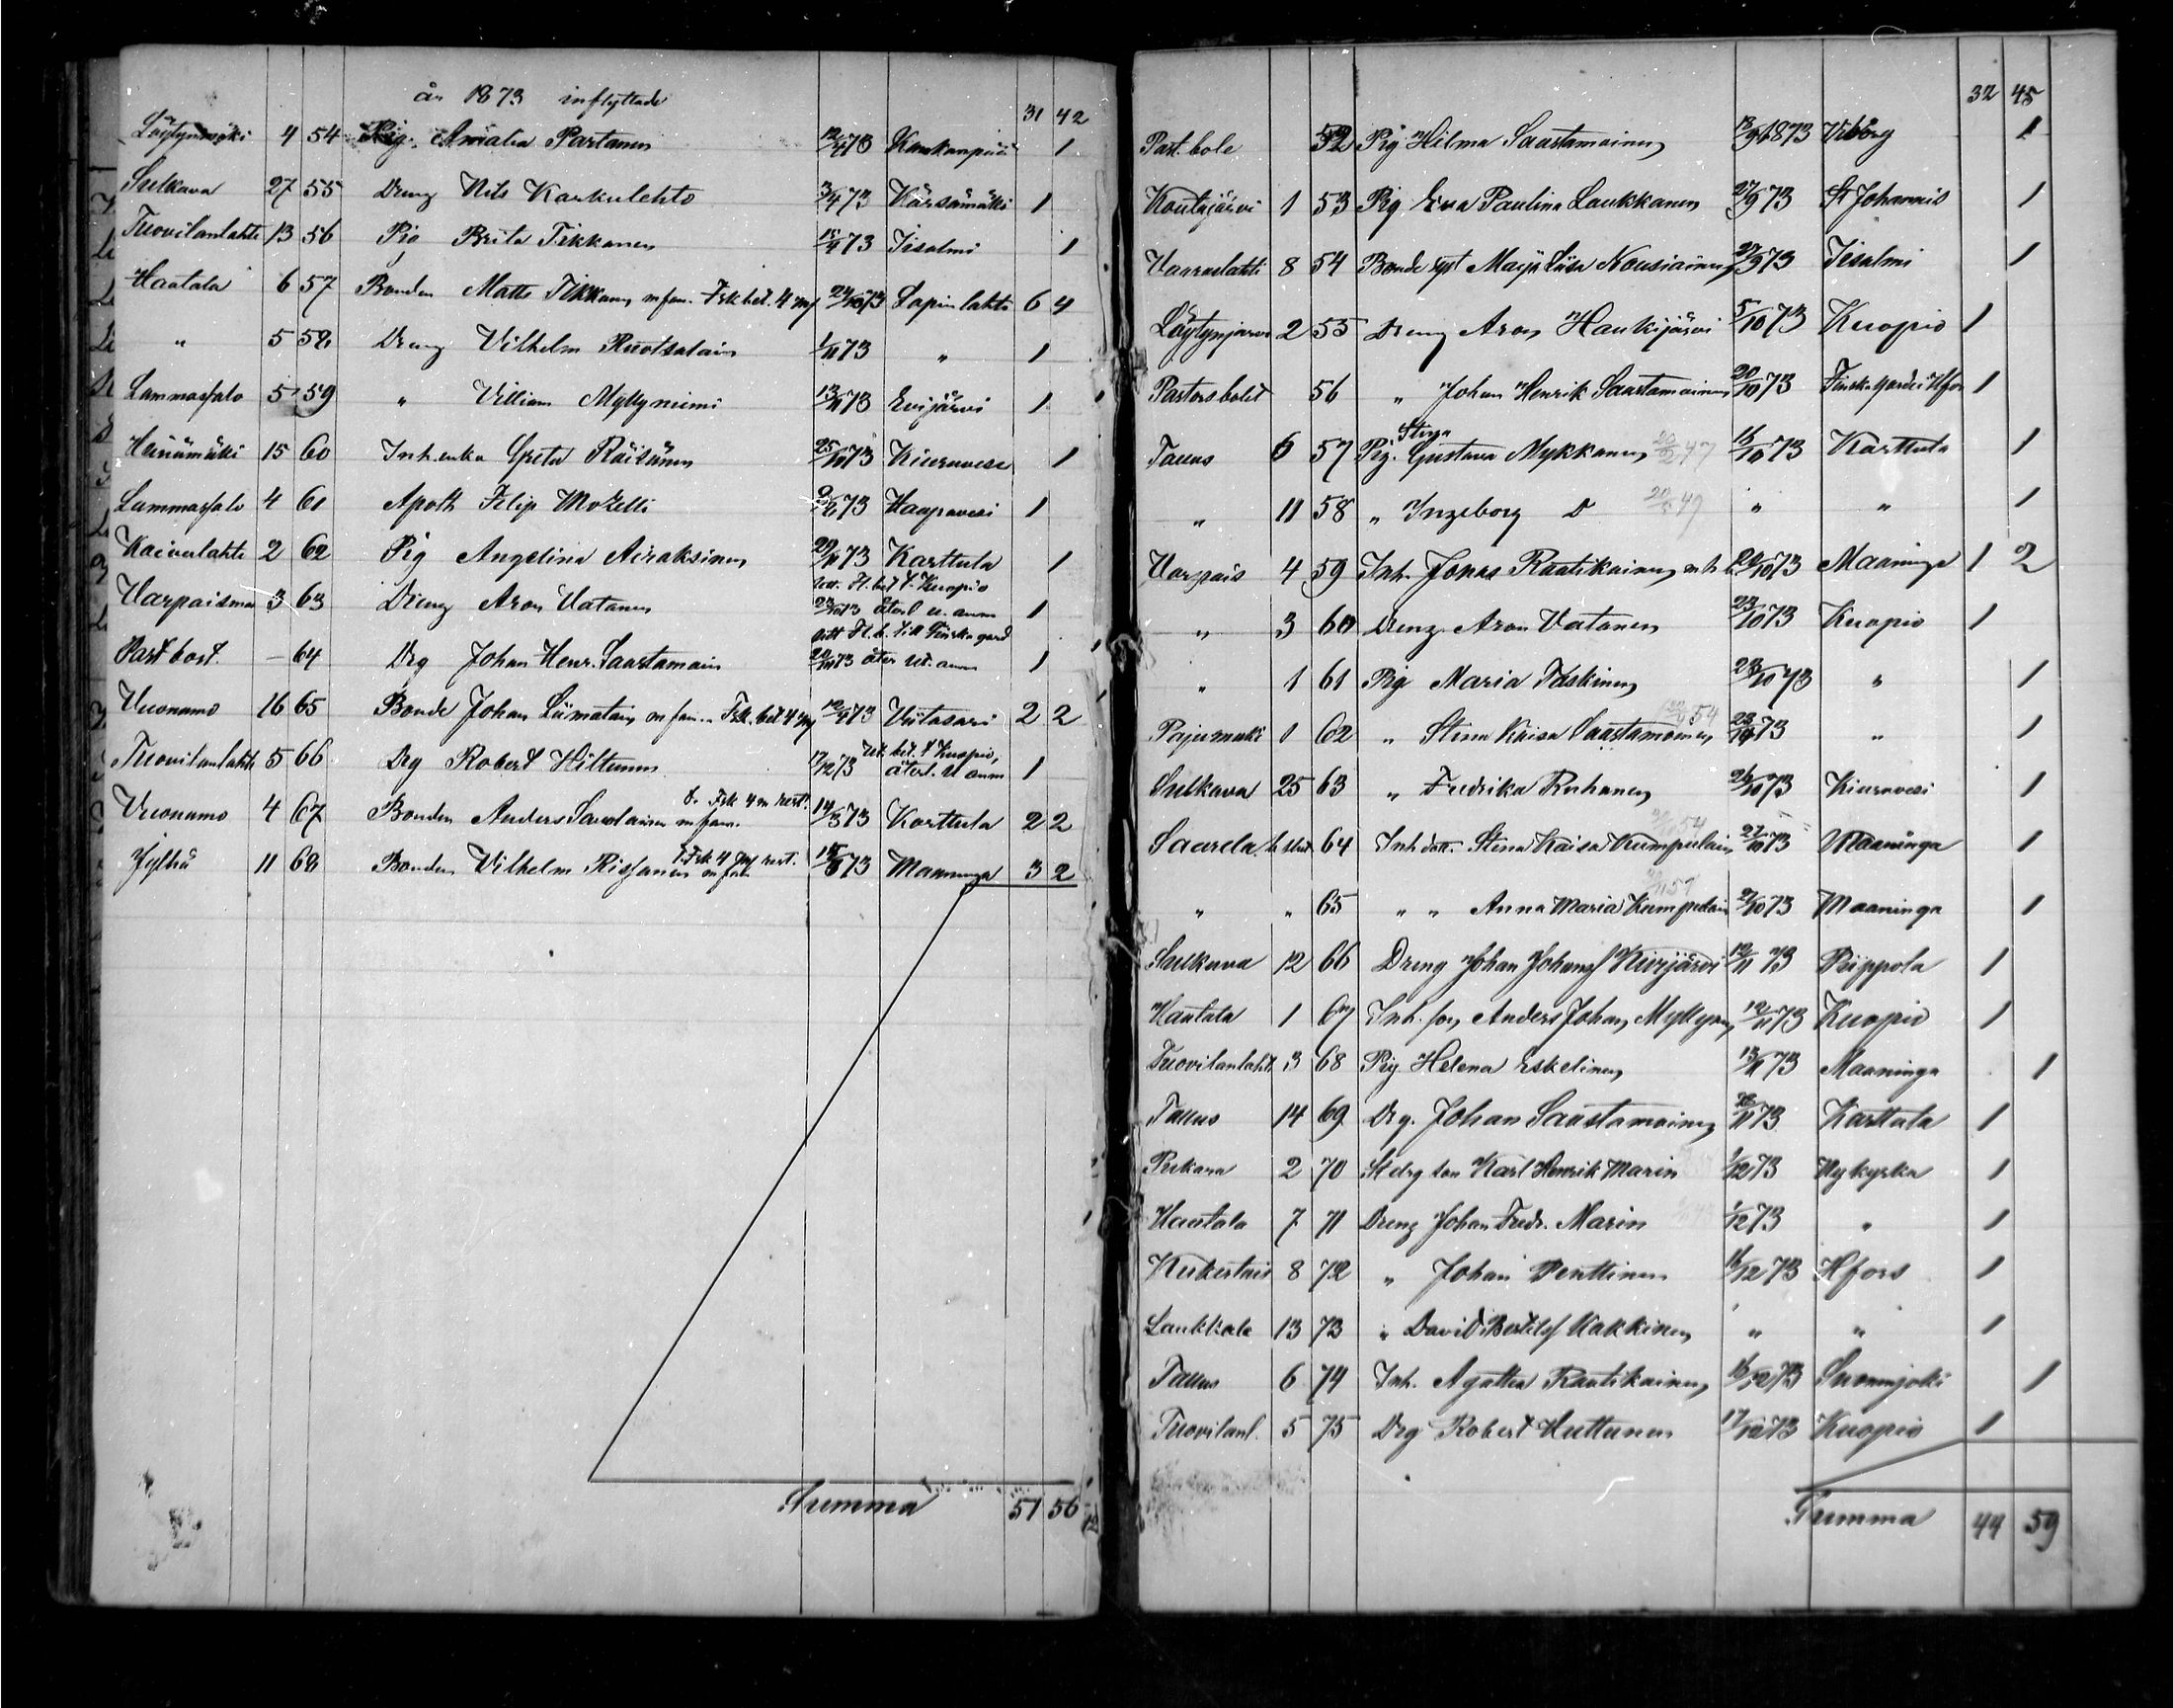 år 1873 inflyttade
31 42
Löytynmäki 4 54 Pig. Amalia Partanen 12/4 73 Kankaanpää 1
Sulkava 27 55 Dreng Nils Karkulehto 3/4 73 Kärsämäki 1
Tuovilanlahti 13 56 Pig Brita Tikkanen 15/9 73 Iisalmi 1
Haatala 6 57 Bonden Matts Tikkanen m fam. Fsk bet. 4 24/10 73 Lapinlahti 6 4
" 5 58 Dreng Vilhelm Ruotsalain 1/11 73 " 1
Lammassalo 5 59 " Villiam Myllyniemi 13/11 73 Evijärvi 1
Heinämäki 15 60 Inh. enka Greta Räisänen 25/11 73 Kiuruvesi 1
Lammassalo 4 61 Apoth Filip Mozelli 73 Haapavesi 1
Kaiverlahti 2 62 Pig Angelina Airaksinen 29/11 73 Karttula 1
Varpaisma 3 63 Dreng Aron Vatanen bet. t. Kuopio 23/10 73 återl u. anm 1
Past bost. — 64 Drg Johan Henr. Saastamoin till Finska gard 20/10 73 åter ut. anm 1
Vuonamo 16 65 Bonde Johan Liimatain m fam. Fsk. bet 4 12/4 73 Viitasari 2 2
Tuovilanlahti 5 66 Drg Robert Hiltunen 17/12 73 Ut. bet. t Kuopio, återl. U anm 1
Vuonamo 4 67 Bonden Anders Savolainen m fam. Fsk 4 m rest. 14/3 73 Karttula 2 2
Jylhä 11 68 Bonden Vilhelm Rissanen m fam Fsk 4 rest. 15/8 73 Maaninga 3 2
Summa 51 56
32 45
Past. bole 52 Pig Hilma Saastamoinen 1873 Viborg 1
Koutajärvi 1 53 Pig Eva Paulina Laukkanen 27/9 73 St Johannis 1
Varraslahti 8 54 Bonde Maja Liisa Kousiainen 27/9 73 Iisalmi 1
Löytynjärvi 2 55 Dreng Aron Haukijärvi 5/10 73 Kuopio 1
Pastorsbolet 56 " Johan Henrik Saastamoinen 20/10 73 Finska Gardet Hfors 1
Tallus 6 57 Pig. Stina Gustava Mykkanen 16/10 73 Karttula 1
" 11 58 " Ingeborg D " " 1
Varpais 4 59 Inh. Jonas Rautikainen m h 20/10 73 Maaninga 1 2
" 3 60 Dreng Aron Vatanen 23/10 73 Kuopio 1
" 1 61 Pig Maria Koskinen 23/10 73 " 1
Pajumäki 1 62 " Stina Kaisa Saastamoinen 23/10 73 " 1
Sulkava 25 63 " Fredrika Ruhanen 26/10 73 Kiuruvesi 1
Saarela 64 Inh. dott. Stina Kaisa Kumpulain 27/10 73 Maaninga 1
" " 65 " " Anna Maria Kumpulain 27/10 73 Maaninga 1
Sulkava 12 66 Dreng Johan Johansf Kivijärvi 12/11 73 Piippola 1
Haatala 1 67 Inh. son Anders Johan Mykkänen 12/11 73 Kuopio 1
Tuovilanlaht 3 68 Pig Helena Eskelinen 13/11 73 Maaninga 1
Tallus 14 69 Drg. Johan Saastamoinen 73 Karttula 1
Pukara 2 70 St drg son Karl Henrik Marin 1/12 73 Nykyrka 1
Haatala 7 71 Dreng Johan Fredr. Marin 1/12 73 " 1
Kukertais 8 72 " Johan Penttinen 16/12 73 Hfors 1
Laukkala 13 73 " David Bertilsf Kakkinen " " 1
Tallus 6 74 Inh. Agatha Rautikainen 16/12 73 Suonnjoki 1
Tuovilanl. 5 75 Drg Robert Huttunen 17/12 73 Kuopio 1
Summa 44 59